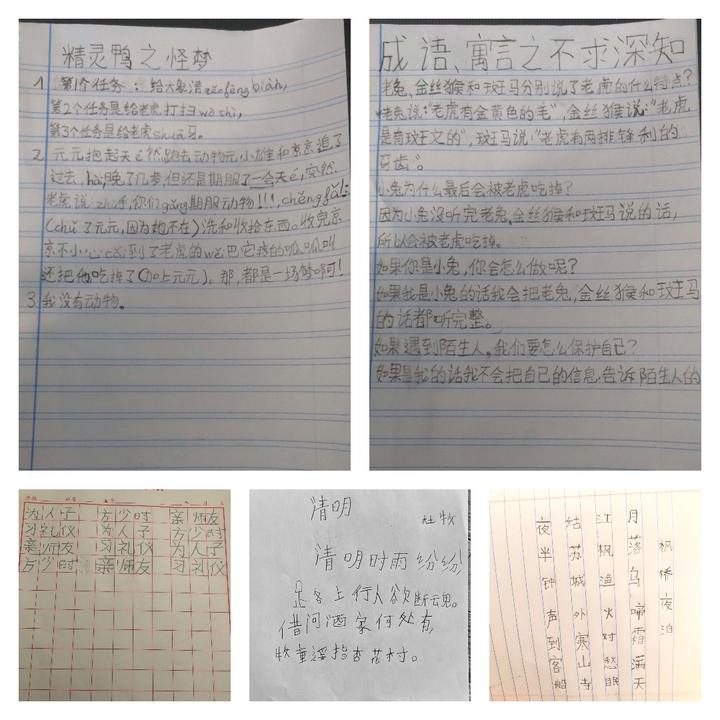 精灵鸭之怪梦
1 第1个任务：给大象洁zǎofèngbiàn,
第2个任务是给老虎打扫wò shì,
第3个任务是给老虎shuā牙。
2 元元把起天 然跑去动物元,小雄和京京追了
过去,hài,晚了几步,但还是期服了一会天é,突然,
老虎说：zhù手,你们gǎng期服动物!!!,chěng
(chú了元元,因为她不在)洗和收拾东西。收完京
京不小心cǎi到了老虎的wěi巴它疼的呱呱叫
还把他吃掉了(加上元元)。那,都是一场梦啊!
3 我没有动物。
成语、寓言之不求深知
老兔、金丝猴和斑马分别说了老虎的什么特点?
老兔说:“老虎有金黄色的毛”,金丝猴说:“老虎
是有斑文的”,斑马说:“老虎有两排锋利的
牙齿”。
小兔为什么最后会被老虎吃掉?
因为小兔没听完老兔、金丝猴和斑马说的话,
所以会被老虎吃掉。
如果你是小兔,你会怎么做呢?
如果我是小兔的话我会把老兔,金丝猴和斑马
的话都听完整。
如果遇到陌生人,我们要怎么保护自己?
如果是我的话我不会把自己的信息告诉陌生人的
为人子 方少时 亲师友
习礼仪 为人子 方少时
亲师友 习礼仪 为人子
方少时 亲师友 习礼仪
清明
杜牧
清明时雨纷纷,
上行人欲断魂。
借问酒家何处有,
牧童遥指杏花村。
枫桥夜泊
月落乌啼霜满天
江枫渔火对愁眠
姑苏城外寒山寺
夜半钟声到客船